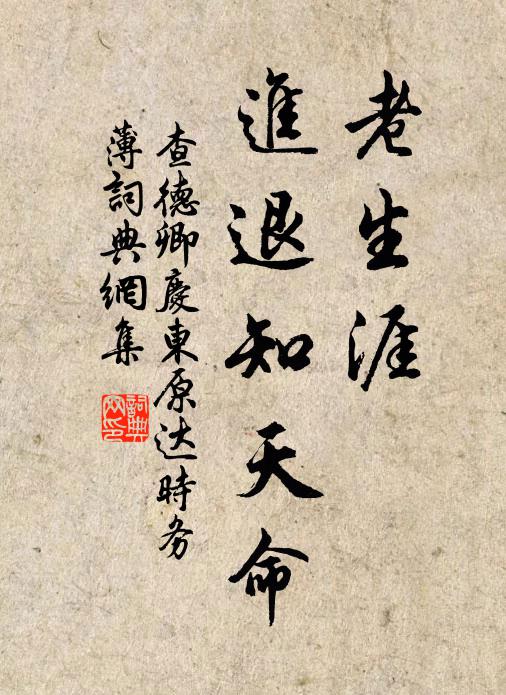 老生涯
進退知天命
查德卿慶東原达時务
薄詞典網集
詞典
网印